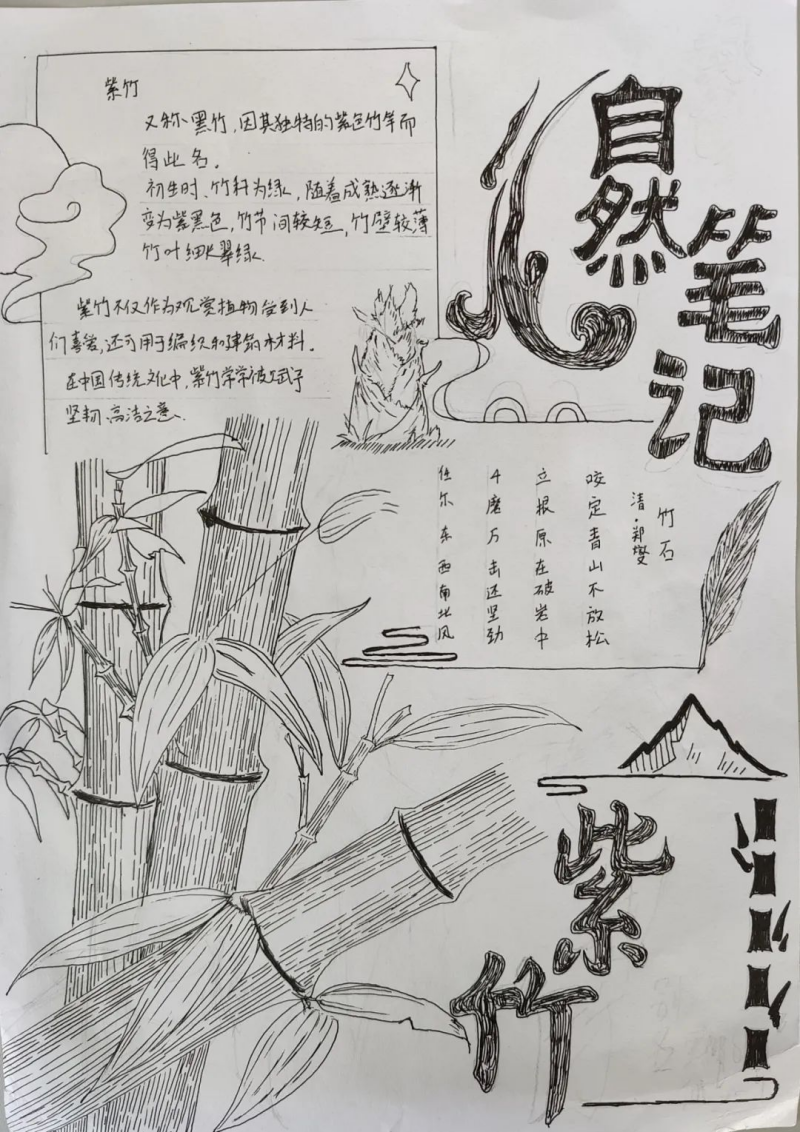 自然
笔记
紫竹
又称黑竹，因其独特的紫色竹竿而
得此名。
初生时、竹秆为绿，随着成熟逐渐
变为紫黑色，竹节间较短，竹壁较薄
竹叶细长翠绿.
紫竹不仅作为观赏植物受到人
们喜爱，还可用于编织和建筑材料。
在中国传统文化中，紫竹常常被赋予
坚韧、高洁之意.
竹石
清·郑燮
咬定青山不放松
立根原在破岩中
千磨万击还坚劲
任尔东西南北风
紫竹